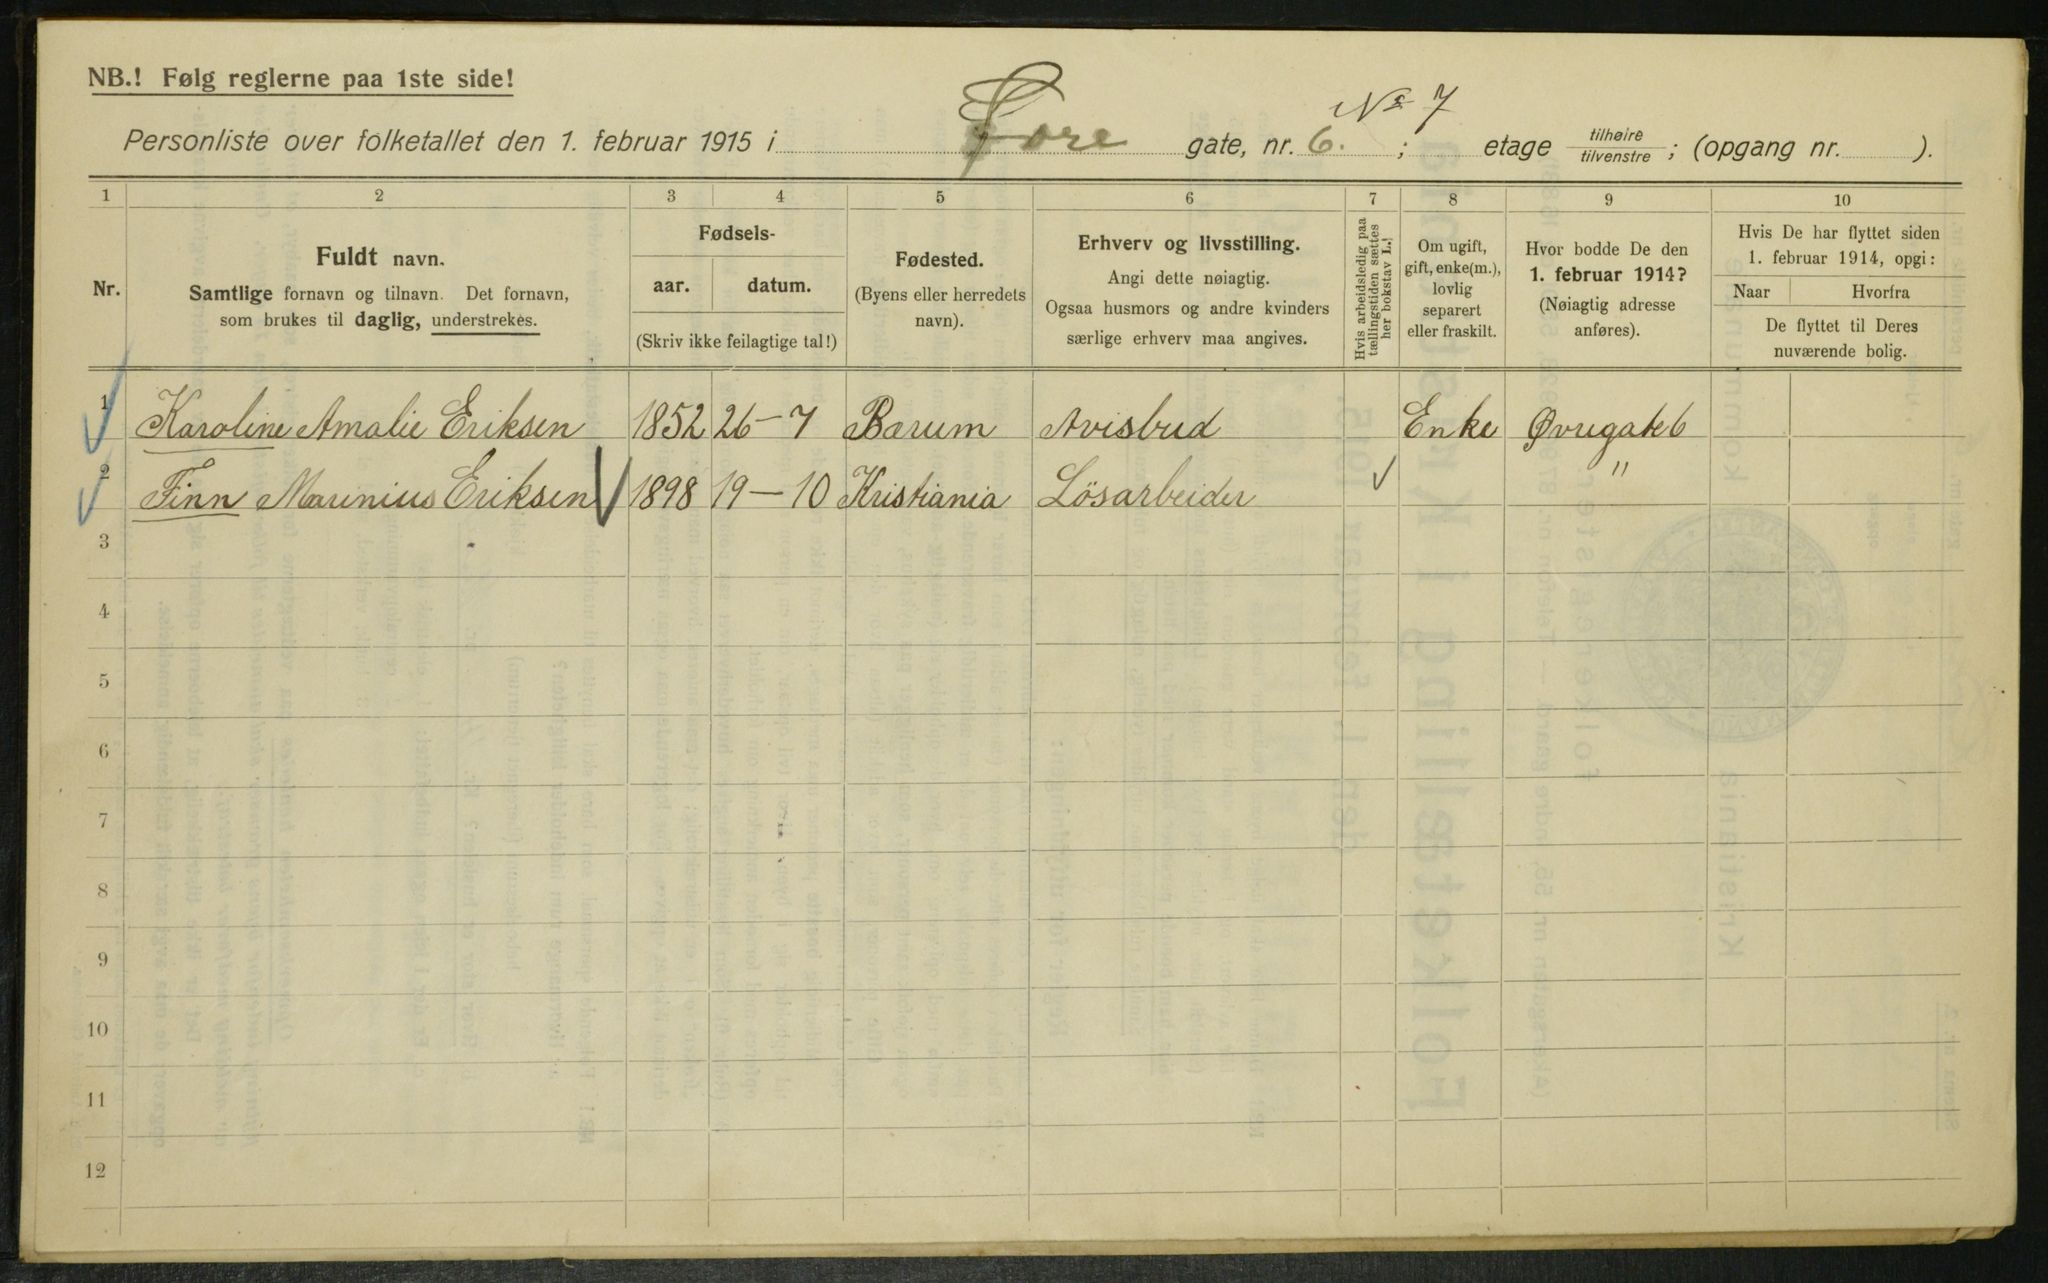 NB.! Følg reglerne paa 1ste side!
No 7
Personliste over folketallet den 1. februar 1915 i Øvre gate, nr. 6. ; etage tilhøire / tilvenstre ; (opgang nr. ).
1 2 3 4 5 6 7 8 9 10
Nr.
Fuldt navn.
Samtlige fornavn og tilnavn. Det fornavn,
som brukes til daglig, understrekes.
Fødsels-
aar. datum.
(Skriv ikke feilagtige tal!)
Fødested.
(Byens eller herredets
navn).
Erhverv og livsstilling.
Angi dette nøiagtig.
Ogsaa husmors og andre kvinders
særlige erhverv maa angives.
Hvis arbeidsledig paa
tællingstiden sættes
her bokstav L.!
Om ugift,
gift, enke(m.),
lovlig
separert
eller fraskilt.
Hvor bodde De den
1. februar 1914?
(Nøiagtig adresse
anføres).
Hvis De har flyttet siden
1. februar 1914, opgi:
Naar Hvorfra
De flyttet til Deres
nuværende bolig.
1 Karoline Amalie Eriksen 1852 26-7 Bærum Avisbud Enke Øvregate 6
2 Finn Marinius Eriksen 1898 19-10 Kristiania Lösarbeider "
3
4
5
6
7
8
9
10
11
12